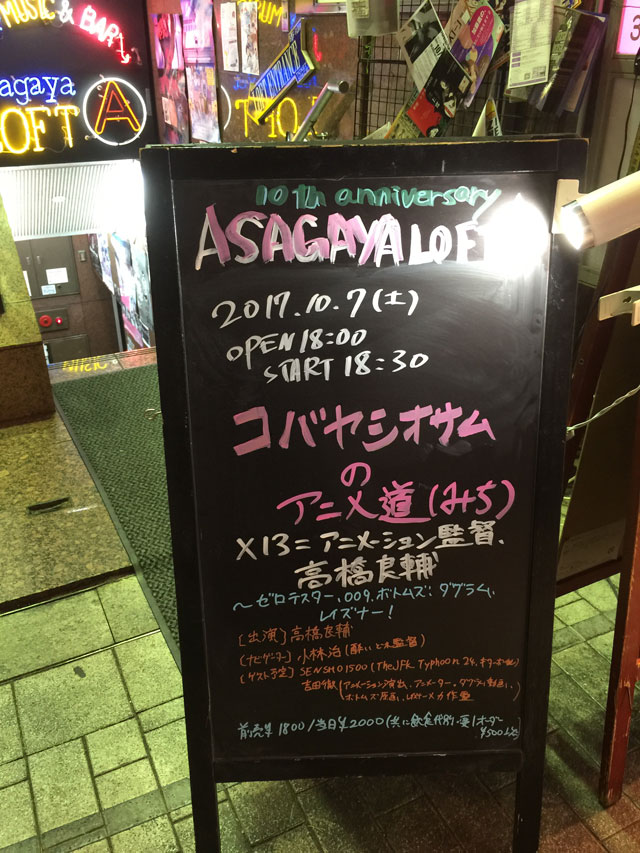 MUSIC & BAR
agaya
LOFT A
10th anniversary
ASAGAYA LOFT
2017.10.7(土)
OPEN 18:00
START 18:30
コバヤシオサム
の
アニメ道(みち)
X13=アニメーション監督、
高橋良輔
〜ゼロテスター、009、ボトムズ、ダグラム、
レイズナー!
[出演] 高橋良輔
[ナビゲーター] 小林治(酔いどれ監督)
[ゲスト予定] SENSHO1500 (The JFK, Typhoon 24,
吉田徹(アニメーション演出、アニメーター、ダグラム動画、
ボトムズ原画、レイズナーメカ作監
前売¥1800/当日¥2000(共に飲食代別・要1オーダー
¥500以上)
MUSIC